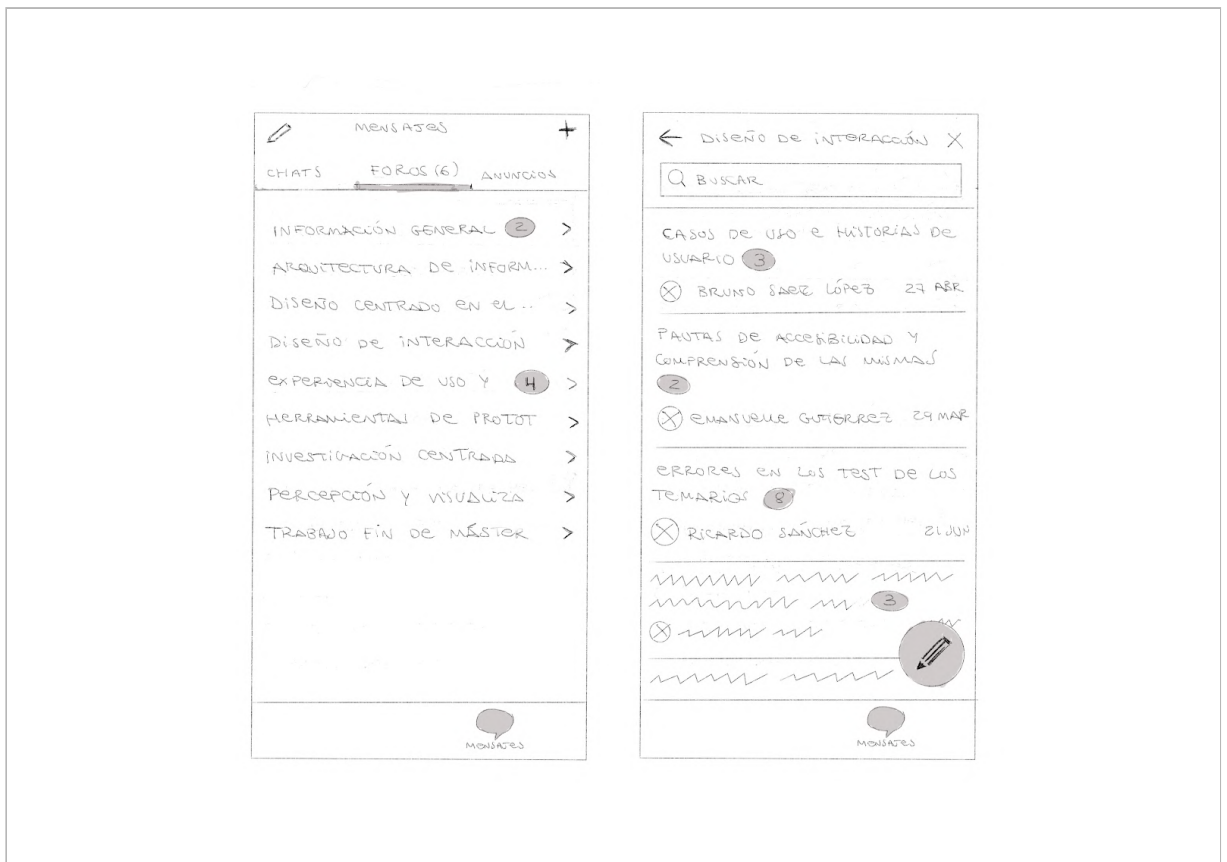 MENSAJES
CHATS FOROS (6) ANUNCIOS
INFORMACIÓN GENERAL 2
ARQUITECTURA DE INFORM...
DISEÑO CENTRADO EN EL ..
DISEÑO DE INTERACCIÓN
EXPERIENCIA DE USO Y 4
HERRAMIENTAS DE PROTOT
INVESTIGACIÓN CENTRADA
PERCEPCIÓN Y VISUALIZA
TRABAJO FIN DE MÁSTER
MENSAJES
DISEÑO DE INTERACCIÓN
BUSCAR
CASOS DE USO E HISTORIAS DE
USUARIO 3
BRUNO SAEZ LÓPEZ 27 ABR
PAUTAS DE ACCESIBILIDAD Y
COMPRENSIÓN DE LAS MISMAS
2
EMANUELLE GUTIERREZ 29 MAR
ERRORES EN LOS TEST DE LOS
TEMARIOS 8
RICARDO SÁNCHEZ 21 JUN
3
MENSAJES